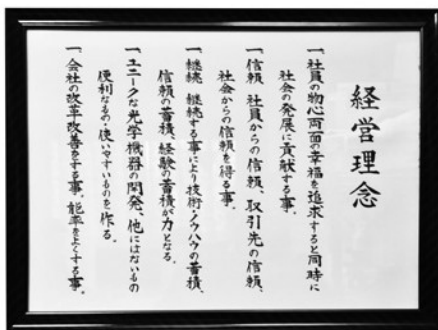 経営理念
一、社員の物心両面の幸福を追求すると同時に
社会の発展に貢献する事。
一、信頼 社員からの信頼、取引先の信頼、
社会からの信頼を得る事。
一、継続 継続する事により技術・ノウハウの蓄積、
信頼の蓄積、経験の蓄積が力となる。
一、ユニークな光学機器の開発、他にはないもの
便利なもの・使いやすいものを作る。
一、会社の改革改善をする事、能率をよくする事。